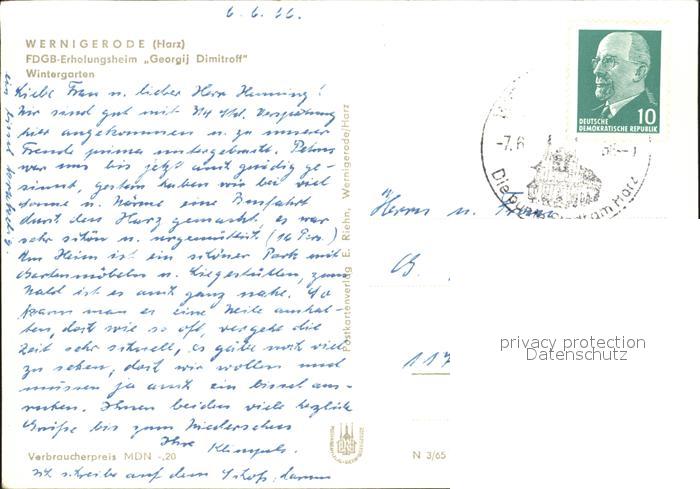 6. 6. 66.
WERNIGERODE (Harz)
FDGB-Erholungsheim „Georgij Dimitroff"
Wintergarten
Liebe Frau u. lieber Herr Henning!
Wir sind gut mit Std. Verspätung
hier angekommen u. zu unserer
Freude prima untergebracht. Petrus
war uns bis jetzt auch gnädig ge-
sinnt, gestern haben wir bei viel
Sonne u. Wärme eine Busfahrt
durch den Harz gemacht, es war
sehr schön u. urgemütlich (16 Pers.)
Am Heim ist ein schöner Park mit
Gartenmöbeln u. Liegestühlen, zum
Wald ist es auch ganz nahe. So
kann man es eine Weile aushal-
ten, doch wie so oft, vergeht die
Zeit sehr schnell, es gäbe noch viel
zu sehen, doch wir wollen und
müssen ja auch ein bissel aus-
ruhen. Ihnen beiden viele herzliche
Grüße bis zum Wiedersehen
Ihre
Verbraucherpreis MDN -,20
Ich schreibe auf dem Schoß, darum
Postkartenverlag E. Riehn, Wernigerode/Harz
N 3/65
10
DEUTSCHE
DEMOKRATISCHE REPUBLIK
-7.6
Die bunte Stadt am Harz
Herrn u. Frau
G.
117
privacy protection
Datenschutz